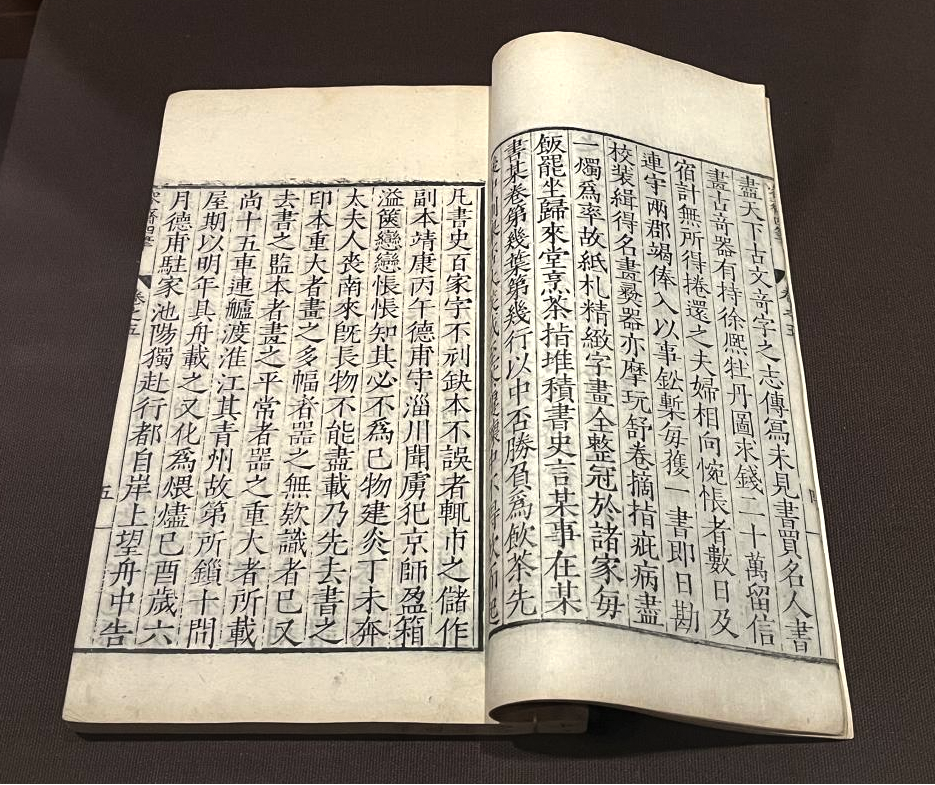 盡天下古文奇字之志傳寫未見書買名人書
畫古奇器有持徐熙牡丹圖求錢二十萬留信
宿計無所得捲還之夫婦相向惋悵者數日及
連守兩郡竭俸入以事鈆槧每獲一書即日勘
校裝緝得名畫彝器亦摩玩舒卷摘指疵病盡
一燭爲率故紙札精緻字畫全整冠於諸家每
飯罷坐歸來堂烹茶指堆積書史言某事在某
書某卷第幾葉第幾行以中否勝負爲飲茶先
起
凡書史百家字不刓缺本不誤者輒市之儲作
副本靖康丙午德甫守淄川聞虜犯京師盈箱
溢篋戀戀悵悵知其必不爲己物建炎丁未奔
太夫人喪南來既長物不能盡載乃先去書之
印本重大者畫之多幅者器之無欵識者已又
去書之監本者畫之平常者器之重大者所載
尚十五車連艫渡淮江其青州故第所鎖十間
屋期以明年具舟載之又化爲煨燼己酉歲六
月德甫駐家池陽獨赴行都自岸上望舟中告
卷之五
五